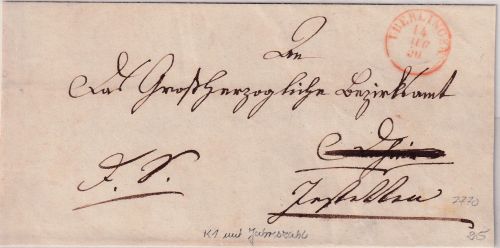 UBERLINGEN
14
AUG
An
Das Großherzogliche Bezirksamt
D. S.
Jestetten
K1 mit Jahreszahl